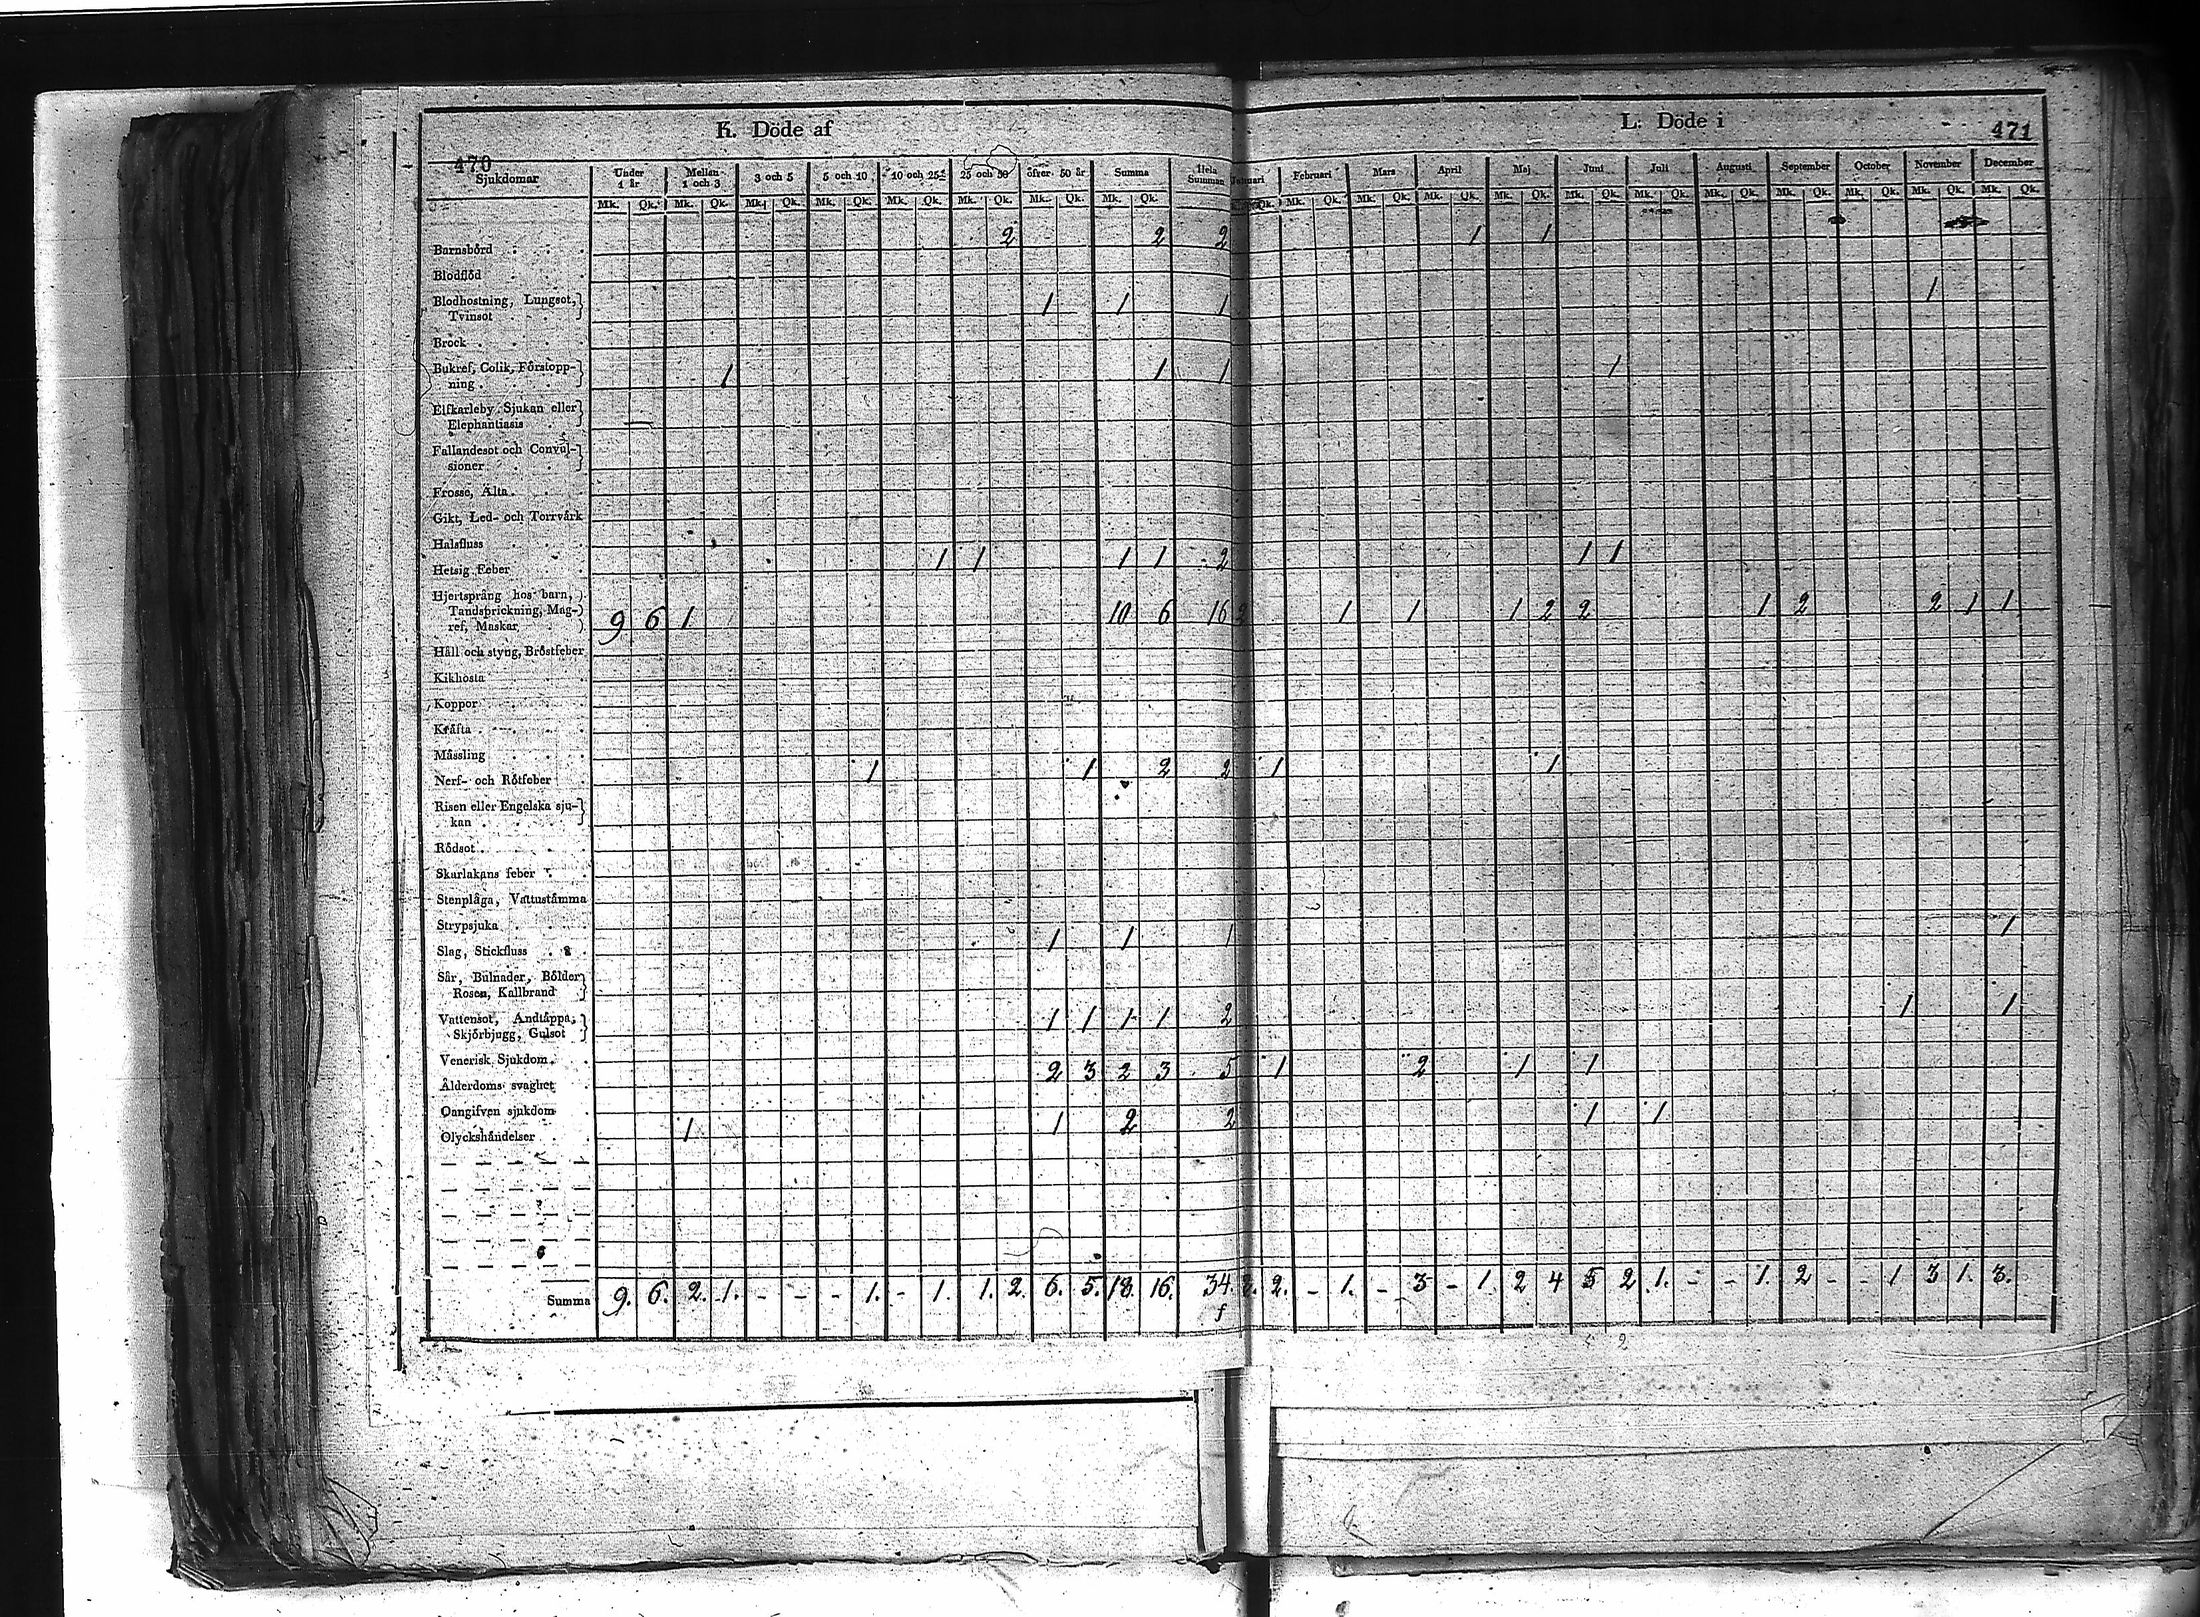 K. Döde af
L. Döde i
470
471
Sjukdomar Under 1 år Mellan 1 och 3 3 och 5 5 och 10 10 och 25 25 och 50 öfver 50 år Summa Hela Summan Januari Februari Mars April Maj Juni Juli Augusti September October November December
Mk. Qk. Mk. Qk. Mk. Qk. Mk. Qk. Mk. Qk. Mk. Qk. Mk. Qk. Mk. Qk. Qk. Mk. Qk. Mk. Qk. Mk. Qk. Mk. Qk. Mk. Qk. Mk. Qk. Mk. Qk. Mk. Qk. Mk. Qk. Mk. Qk. Mk. Qk.
Barnsbörd 2 2 2 1 1
Blodflöd
Blodhostning, Lungsot,
Tvinsot 1 1 1 1
Brock
Bukref, Colik, Förstopp-
ning 1 1 1 1
Elfkarleby Sjukan eller
Elephantiasis
Fallandesot och Convul-
sioner
Frosse, Älta
Gikt, Led- och Torrvärk
Halsfluss
Hetsig Feber 1 1 1 1 2 1 1
Hjertsprång hos barn,
Tandsprickning, Mag-
ref, Maskar 9 6 1 10 6 16 2 1 1 1 2 2 1 2 2 1 1
Håll och styng, Bröstfeber
Kikhosta
Koppor
Kräfta
Mässling
Nerf- och Rötfeber 1 1 2 2 1 1
Risen eller Engelska sju-
kan
Rödsot
Skarlakans feber
Stenplåga, Vattustämma
Strypsjuka
Slag, Stickfluss 1 1 1 1
Sår, Bulnader, Bölder
Rosen, Kallbrand
Vattensot, Andtäppa,
Skjörbjugg, Gulsot 1 1 1 1 2 1 1
Venerisk Sjukdom
Ålderdoms svaghet 2 3 2 3 5 1 2 1 1
Oangifven sjukdom
Olyckshändelser 1 1 2 2 1 1
Summa 9. 6. 2. 1. - - - 1. - 1. 1. 2. 6. 5. 18. 16. 34. 2. 2. - 1. - 3 - 1. 2 4 5 2 1. - - 1. 2 - - 1 3 1. 3.